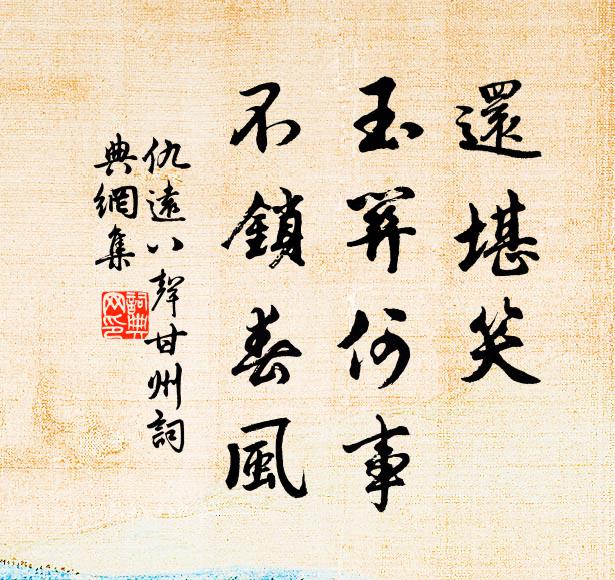 還堪笑
玉關何事
不鎖春風
仇遠八聲甘州詞
典網集
詞典網印